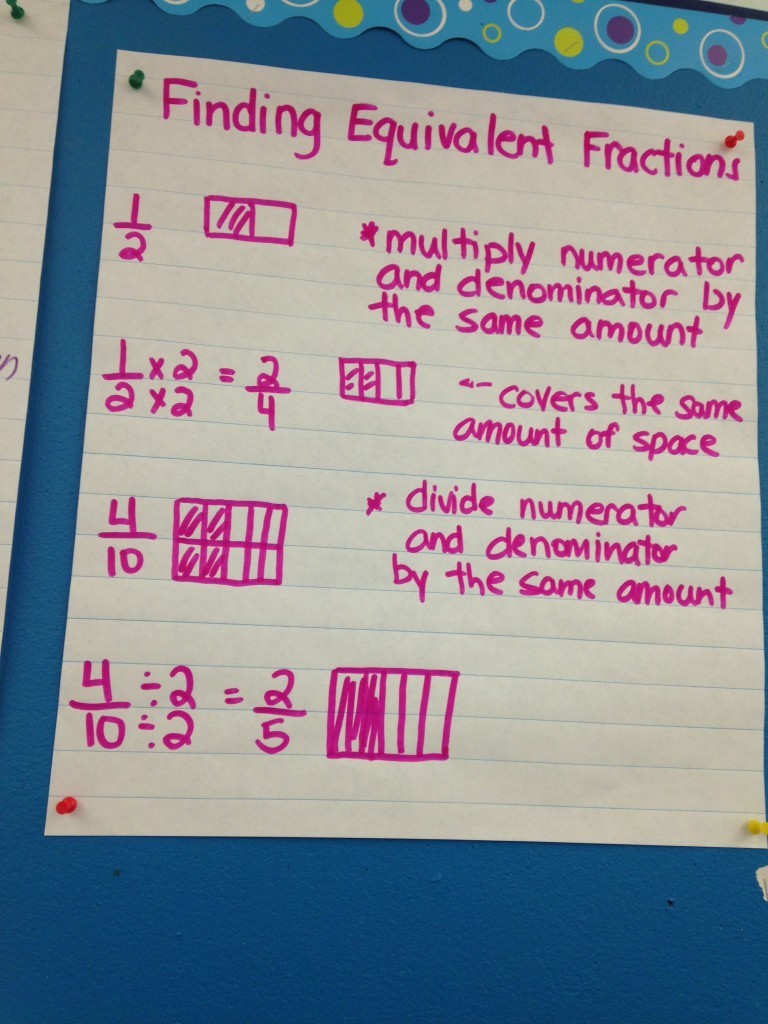 Finding Equivalent Fractions
1/2
* multiply numerator
and denominator by
the same amount
1/2 × 2/× 2 = 2/4
<-- covers the same
amount of space
4/10
* divide numerator
and denominator
by the same amount
4/10 ÷ 2/÷ 2 = 2/5